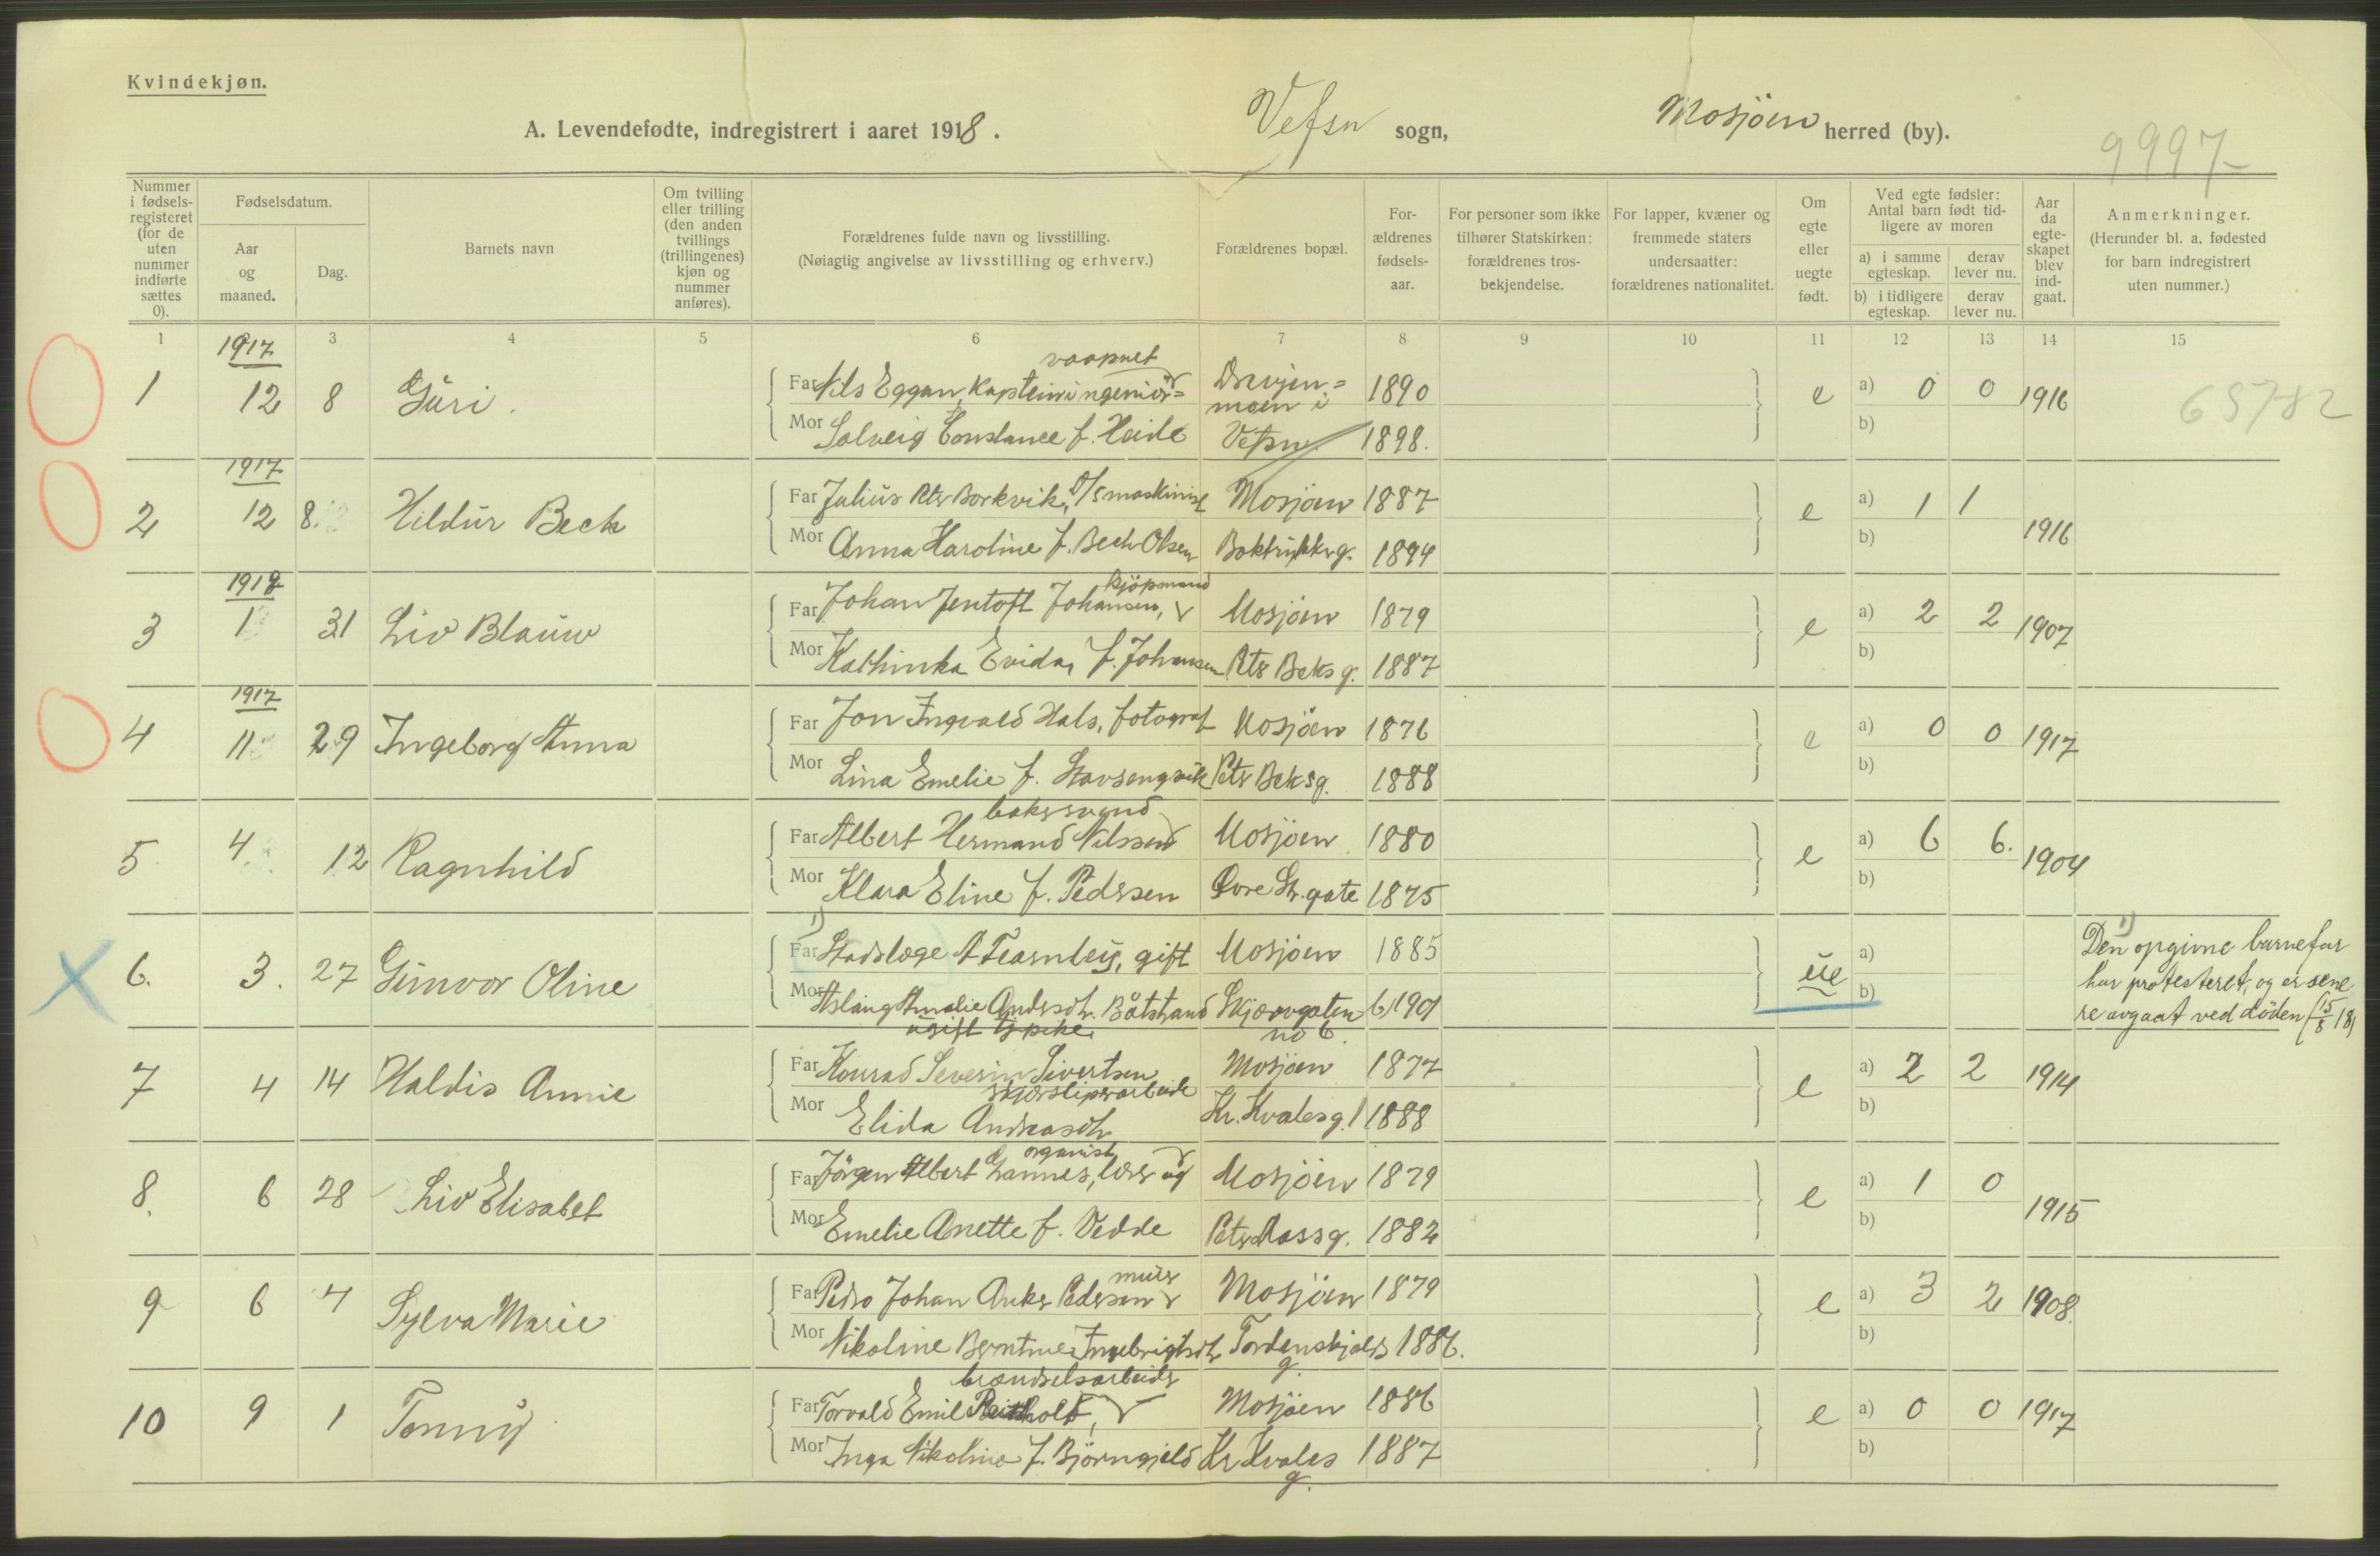 Kvindekjøn.
A. Levendefødte, indregistrert i aaret 1918.
Vefsn sogn,
Mosjöen herred (by).
9997
Nummer i fødsels-registeret (for de uten nummer indførte sættes 0).
Fødselsdatum.
Aar og maaned.
Dag.
Barnets navn
Om tvilling eller trilling (den anden tvillings (trillingenes) kjøn og nummer anføres).
Forældrenes fulde navn og livsstilling.
(Nøiagtig angivelse av livsstilling og erhverv.)
Forældrenes bopæl.
For-ældrenes fødsels-aar.
For personer som ikke tilhører Statskirken: forældrenes tros-bekjendelse.
For lapper, kvæner og fremmede staters undersaatter: forældrenes nationalitet.
Om egte eller uegte født.
Ved egte fødsler: Antal barn født tid-ligere av moren
a) i samme egteskap. derav lever nu.
b) i tidligere egteskap. derav lever nu.
Aar da egte-skapet blev ind-gaat.
Anmerkninger.
(Herunder bl. a. fødested for barn indregistrert uten nummer.)
1 3 4 5 6 7 8 9 10 11 12 13 14 15
1917 vaapnet
1 12 8 Guri. Far Nils Eggan, Kapteiningeniör= Drevjen= 1890 e a) 0 0 1916 65782
moen i
Mor Solveig Constance f. Heide Vefsn. 1898. b)
1917
2 12 8. Hildur Beck Far Julius Petr Borkvik, D/Smaskinist Mosjöen 1887 e a) 1 1 1916
Mor Anna Karoline f. Bech Olsen Boktrykkerg. 1894 b)
1918 kjöpmand
3 1 31 Liv Blauw Far Johan Jentoft Johansen, Mosjöen 1879 e a) 2 2 1907
Mor Kathinka Evida, f. Johansen Petr Beksg. 1887 b)
1917
4 11 29 Ingeborg Anna Far Jon Ingvald Hals, fotograf Mosjöen 1876 e a) 0 0 1917
Mor Lina Emelie f. Petr Beksg. 1888 b)
bakersvend
5 4 12 Ragnhild Far Albert Hermand Nilssen Mosjöen 1880 e a) 6 6. 1904
Mor Klara Eline f. Pedersen Övre Str. gate 1875 b)
1) 1)
6. 3. 27 Gunvor Oline Far Stadslæge A Fearnley, gift Mosjöen 1885 ue a) Den opgivne barnefar
har protesteret, og er sene
Mor Aslaug Amalie Andersdtr. Båtstrand Skjervgaten 6/1901 b) re avgaat ved döden (15/8 18)
ugift no 6.
7 4 14 Haldis Annie Far Konrad Severin Sivertsen Mosjöen 1877 e a) 2 2 1914
Mor Elida Andreasdtr Kr. Kvalesg. 1888 b)
organist
8. 6 28 Liv Elisabet Far Jörgen Albert Hannes, lærer og Mosjöen 1879 e a) 1 0 1915
Mor Emelie Anette f. Vedde Petr Dassg. 1882 b)
murer
9 6 7 Sylva Marie Far Pedro Johan Anker Pedersen Mosjöen 1879 e a) 3 2 1908.
Mor Nikoline Berntine Ingebrigtsdtr Tordenskjolds 1886. b)
g.
brændselsarbeider
10 9 1 Tonny Far Torvald Emil Mosjöen 1886 e a) 0 0 1917
Mor Inga Nikoline f. Björngjeld Kr Kvales 1887 b)
g.